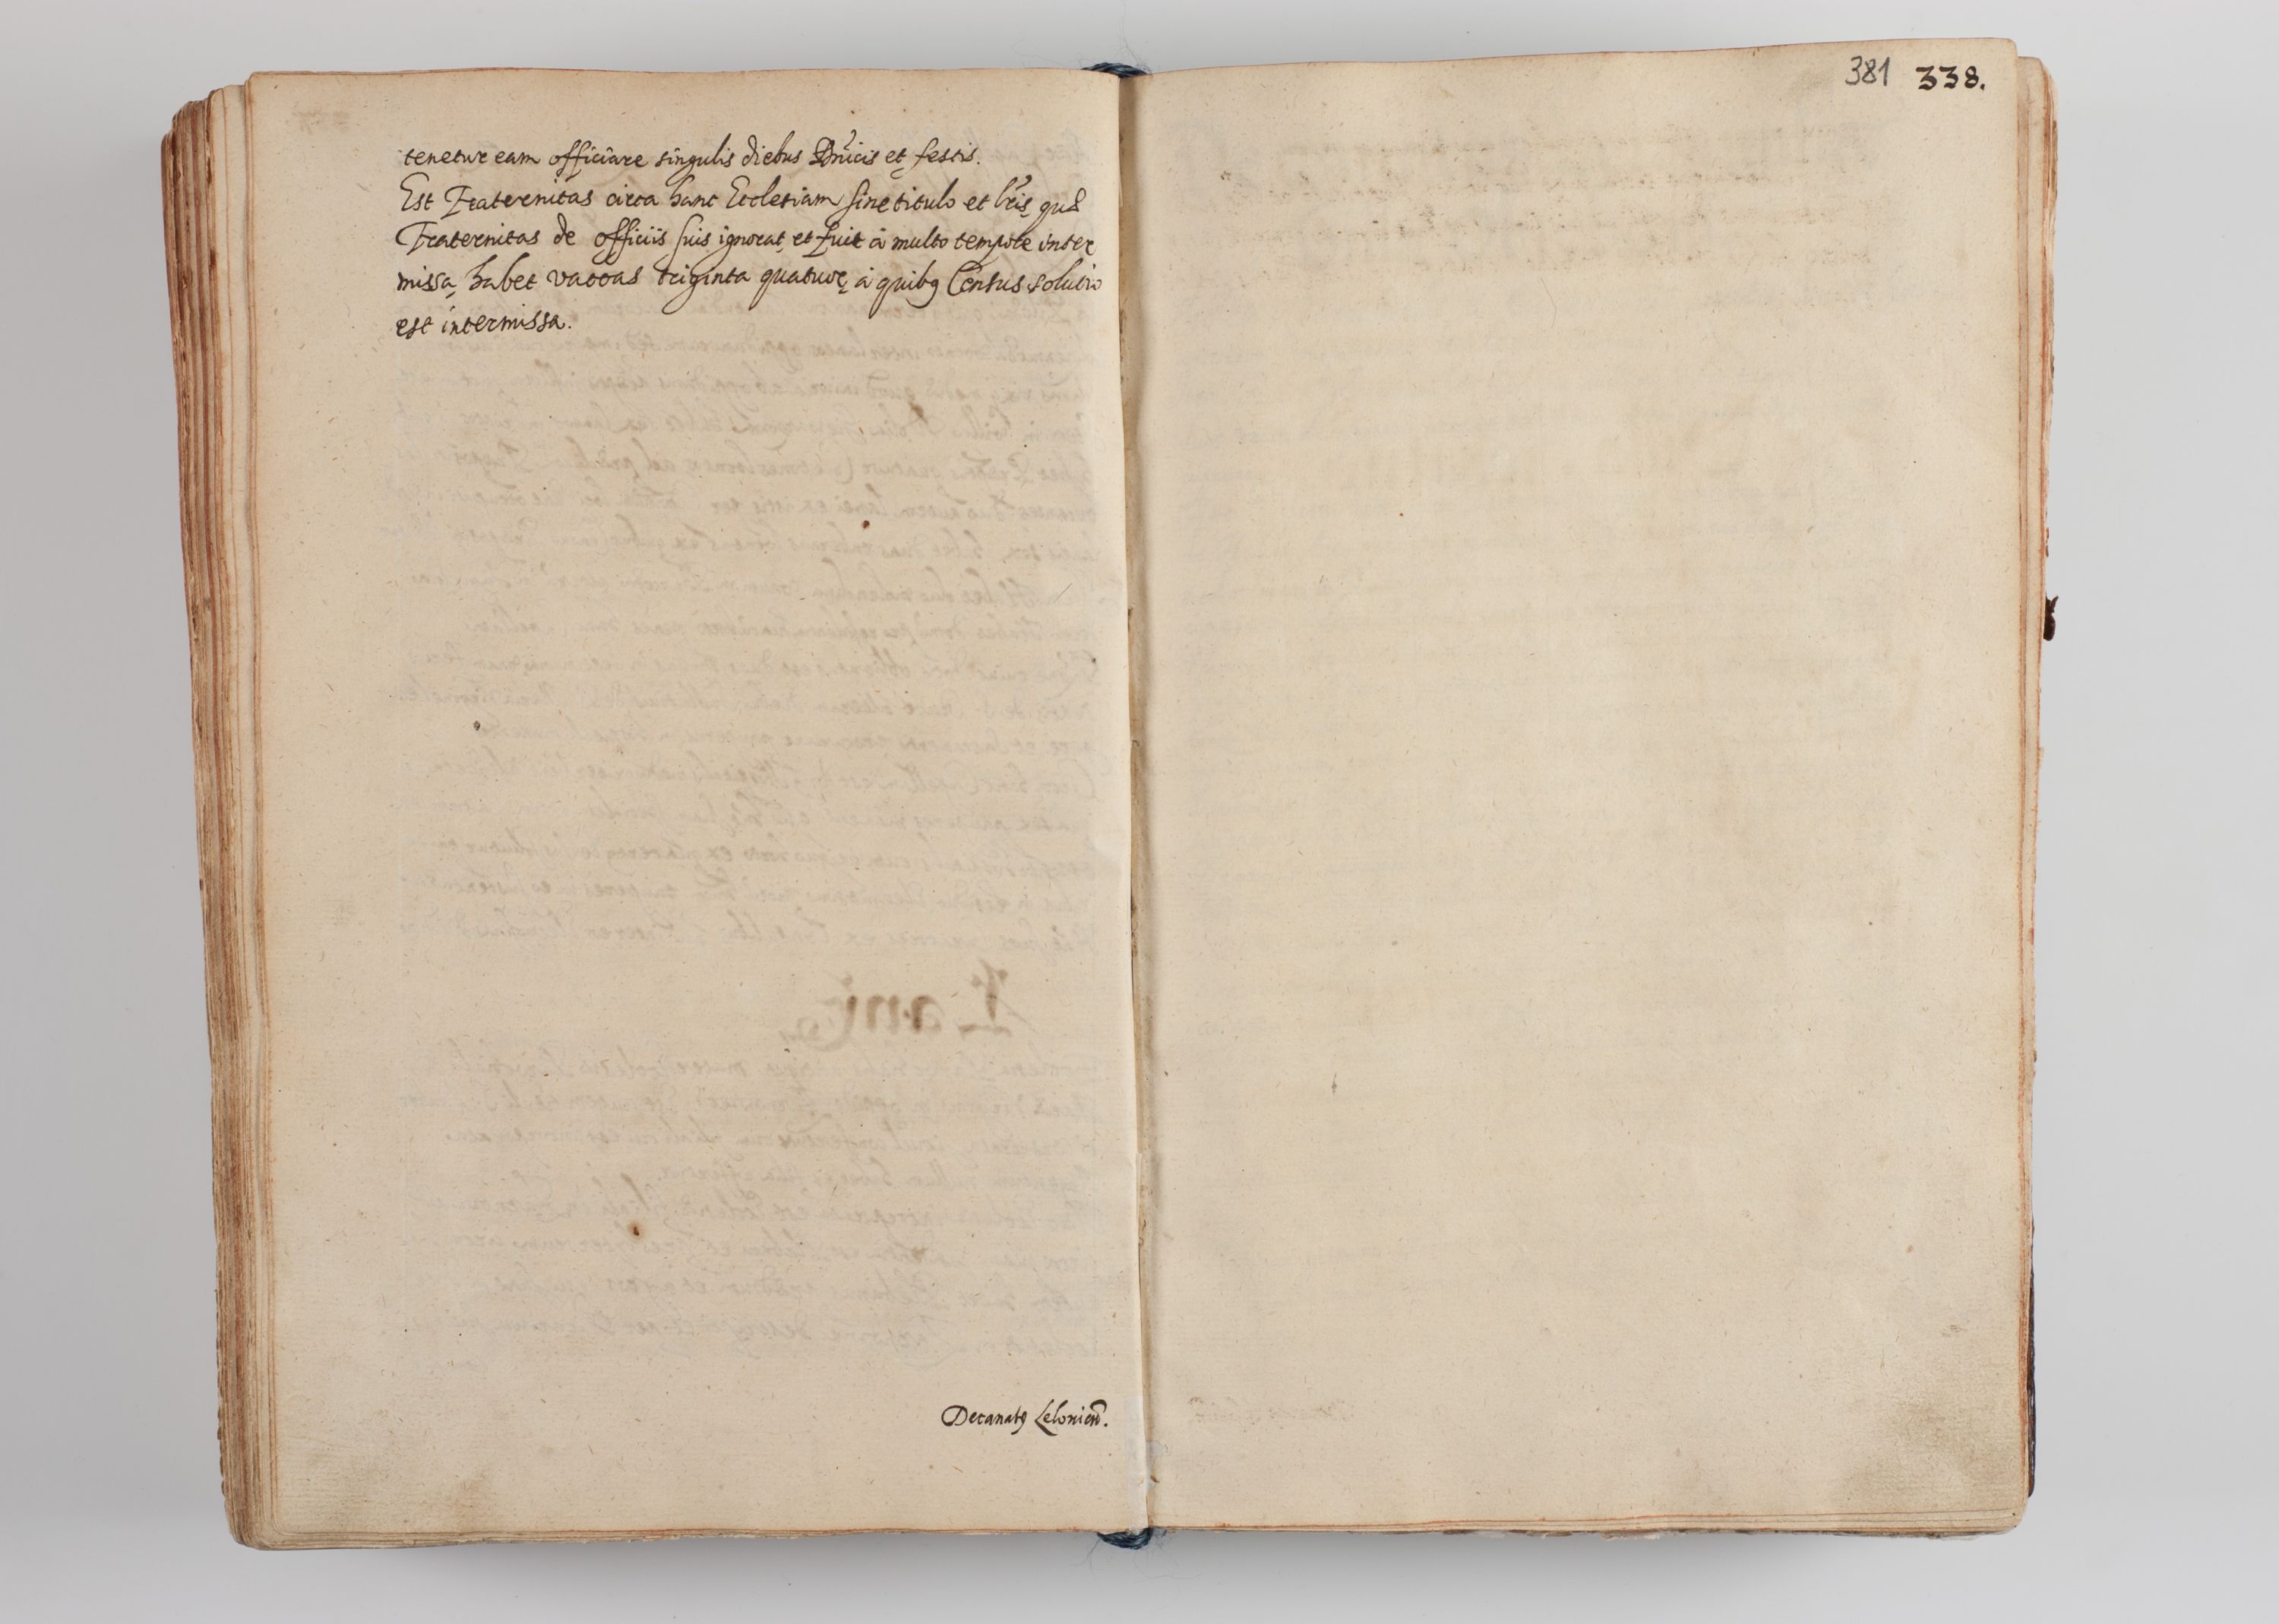 tenetur eam officiare singulis diebus Dnicis et festis.
Est Fraternitas circa hanc Ecclesiam sine titulo et lris, quæ
Fraternitas de officiis suis ignorat, et fuit à multo tempore inter
missa, habet vaccas triginta quatuor, à quibg Census solutio
est intermissa.
Decanatg Lelovien.
381 338.